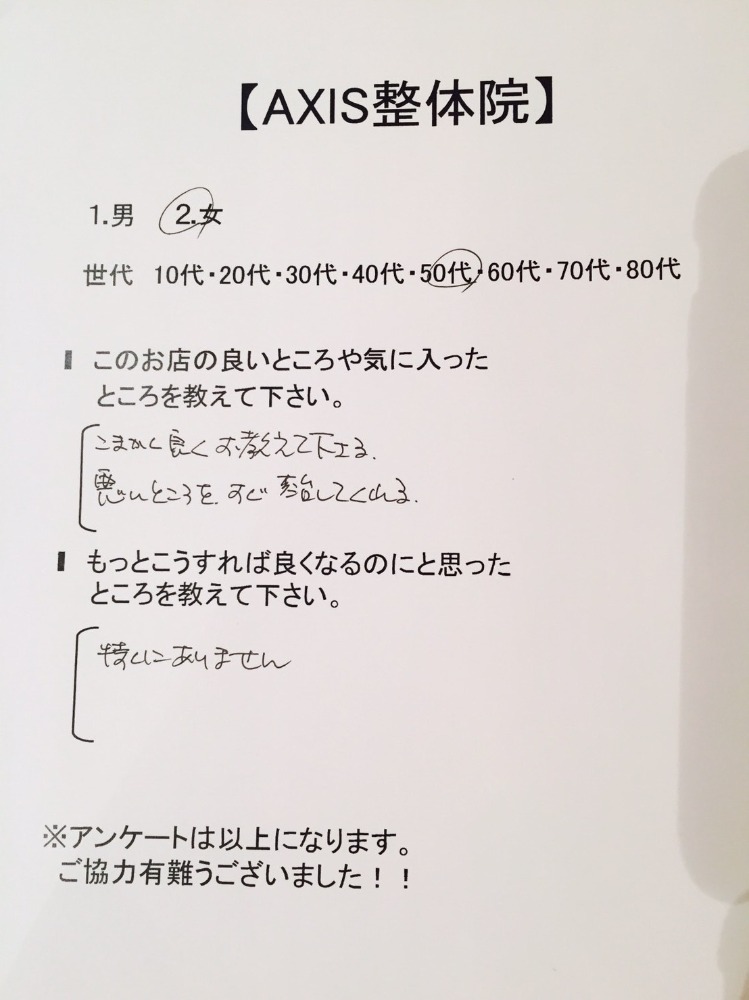 【AXIS整体院】
1.男 2.女
世代 10代・20代・30代・40代・50代・60代・70代・80代
このお店の良いところや気に入った
ところを教えて下さい。
こまかく良くお教えて下さる。
悪いところを、すぐ治してくれる。
もっとこうすれば良くなるのにと思った
ところを教えて下さい。
特にありません
※アンケートは以上になります。
ご協力有難うございました！！